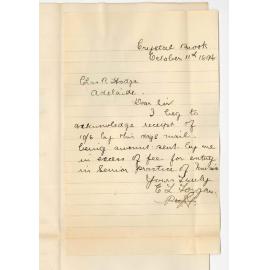 Crystal Brook
October 11th 1896
Chas R Hodge
Adelaide.
Dear Sir
I beg to
acknowledge receipt of
10/6 by this days mail
being amount sent by me
in excess of fee for entry
in Senior Practice of Music
Yours truly
E L